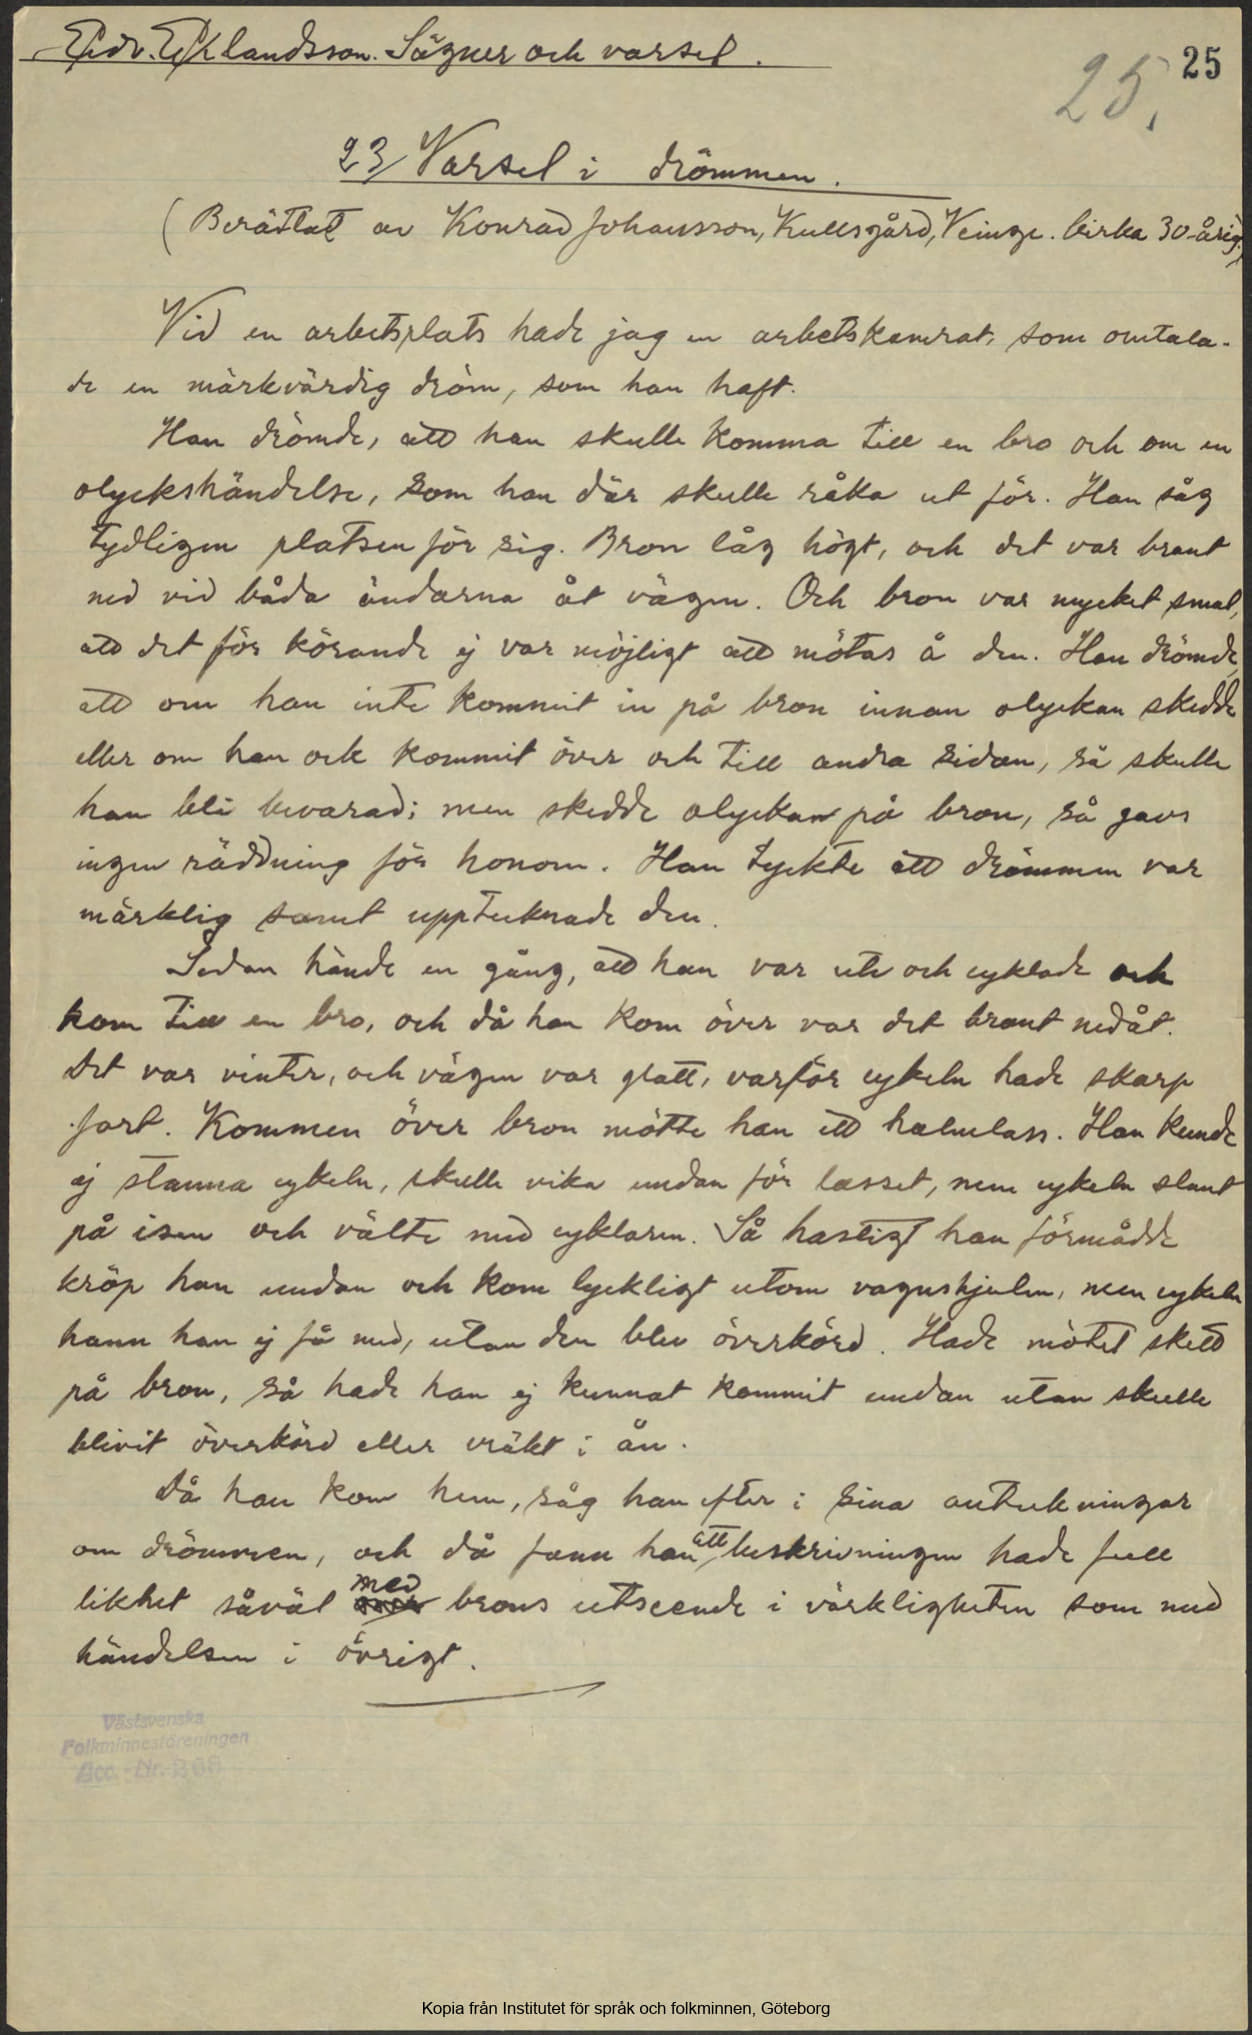 Edv. Eklandsson. Sägner och varsel.
25
25.
23/ Varsel i drömmen.
(Berättat av Konrad Johansson, Kullsgård, Veinge. Cirka 30-årig.)
Vid en arbetsplats hade jag en arbetskamrat, som omtala-
de en märkvärdig dröm, som han haft.
Han drömde, att han skulle komma till en bro och om en
olyckshändelse, som han där skulle råka ut för. Han såg
tydligen platsen för sig. Bron låg högt, och det var brant
ned vid båda ändarna åt vägen. Och bron var mycket smal,
att det för körande ej var möjligt att mötas å den. Han drömde,
att om han inte kommit in på bron innan olyckan skedde
eller om han ock kommit över och till andra sidan, så skulle
han bli bevarad; men skedde olyckan på bron, så gavs
ingen räddning för honom. Han tyckte att drömmen var
märklig samt upptecknade den.
Sedan hände en gång, att han var ute och cyklade och
kom till en bro, och då han kom över var det brant nedåt.
Det var vinter, och vägen var glatt, varför cykeln hade skarp
fart. Kommen över bron mötte han ett halmlass. Han kunde
ej stanna cykeln, skulle vika undan för lasset, men cykeln slant
på isen och välte med cyklaren. Så hastigt han förmådde
kröp han undan och kom lyckligt utom vagnshjulen, men cykeln
hann han ej få med, utan den blev överkörd. Hade mötet skett
på bron, så hade han ej kunnat kommit undan utan skulle
blivit överkörd eller vräkt i ån.
Då han kom hem, såg han efter i sina anteckningar
om drömmen, och då fann han att beskrivningen hade full
likhet såväl med brons utseende i värkligheten som med
händelsen i övrigt.
Västsvenska
Folkminnesföreningen
Acc.-Nr. 268
Kopia från Institutet för språk och folkminnen, Göteborg